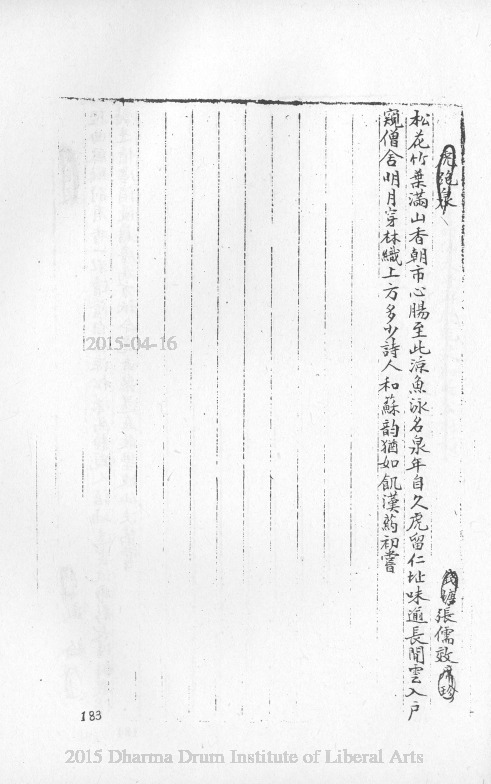 虎跑泉
錢塘張儒敦席珍
松花竹葉滿山香朝市心腸至此涼魚泳名泉年自久虎留仁址味道長閒雲入戶
窺僧舍明月穿林織上方多少詩人和蘇韵猶如飢漢葯初嘗
2015-04-16
183
2015 Dharma Drum Institute of Liberal Arts